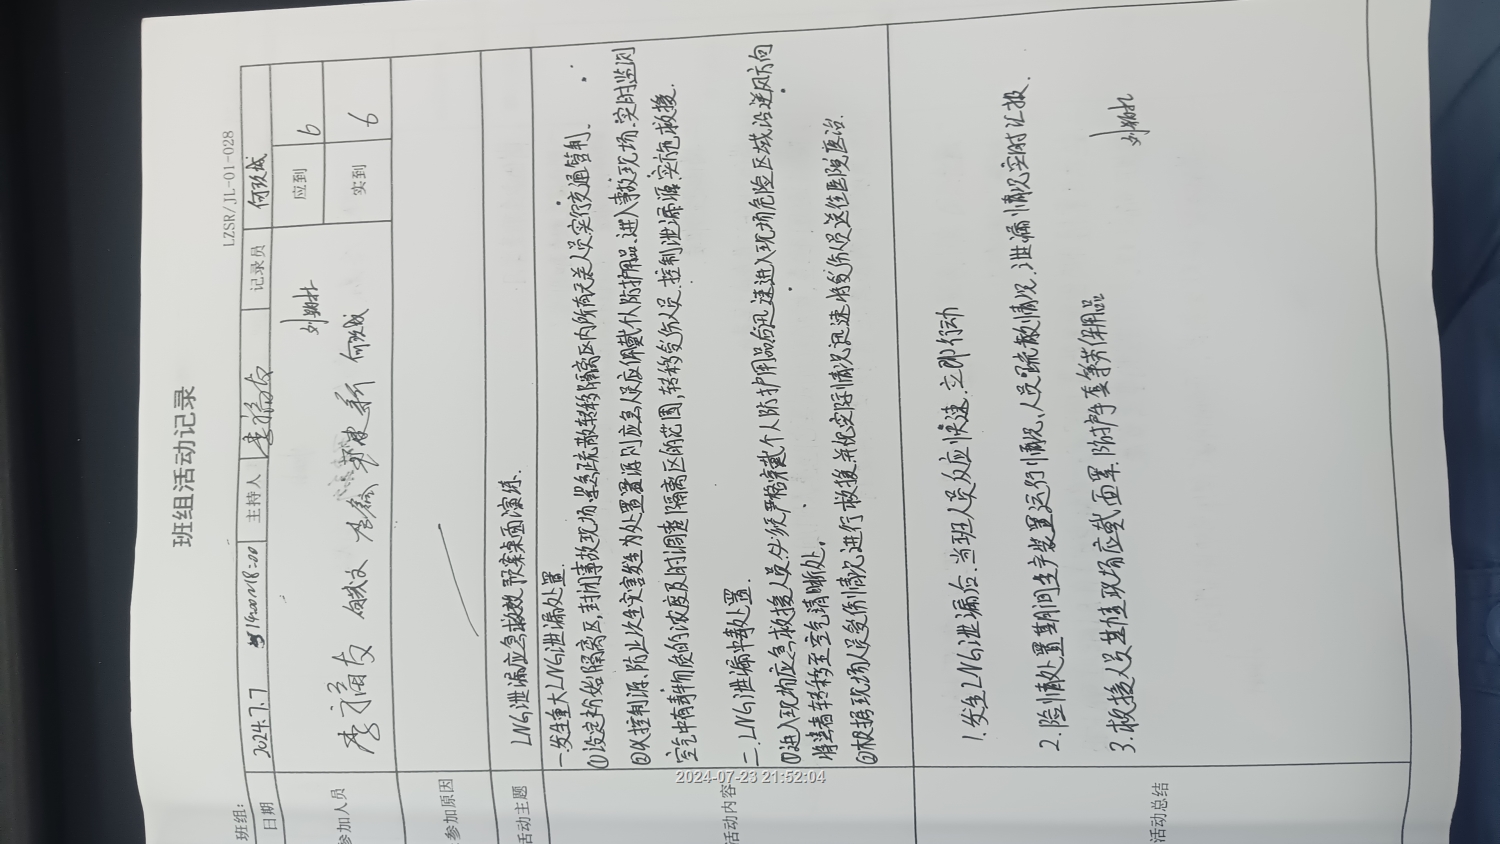 班组活动记录
LZSR/JL-01-028
班组:
日期 2024.7.7 14:00~18:00 主持人 李福友 记录员
应到 6
实到 6
参加人员 李福友
参加原因
活动主题 LNG泄漏应急救援预案桌面演练.
活动内容
一.发生重大LNG泄漏处置
①设定初始隔离区,封闭事故现场.紧急疏散转移隔离区内所有无关人员实行交通管制.
②以控制源、防止次生灾害发生为处置原则应急人员应佩戴个人防护用品.进入事故现场.实时监测
空气中有毒物质的浓度及时调整隔离区的范围,转移受伤人员.控制泄漏源.实施救援.
二.LNG泄漏中毒处置.
①进入现场应急救援人员必须严格穿戴个人防护用品后迅速进入现场危险区域沿逆风方向
将患者转移至空气清晰处。
②根据现场人员受伤情况进行救援并视实际情况迅速将受伤人员送往医院医治.
活动总结
1.发生LNG泄漏后.当班人员反应快速.立即行动
2.险情处置期间生产装置运行情况.人员疏散情况.泄漏情况实时汇报.
3.救援人员进入现场应戴面罩.防护手套等劳保用品
2024-07-23 21:52:04